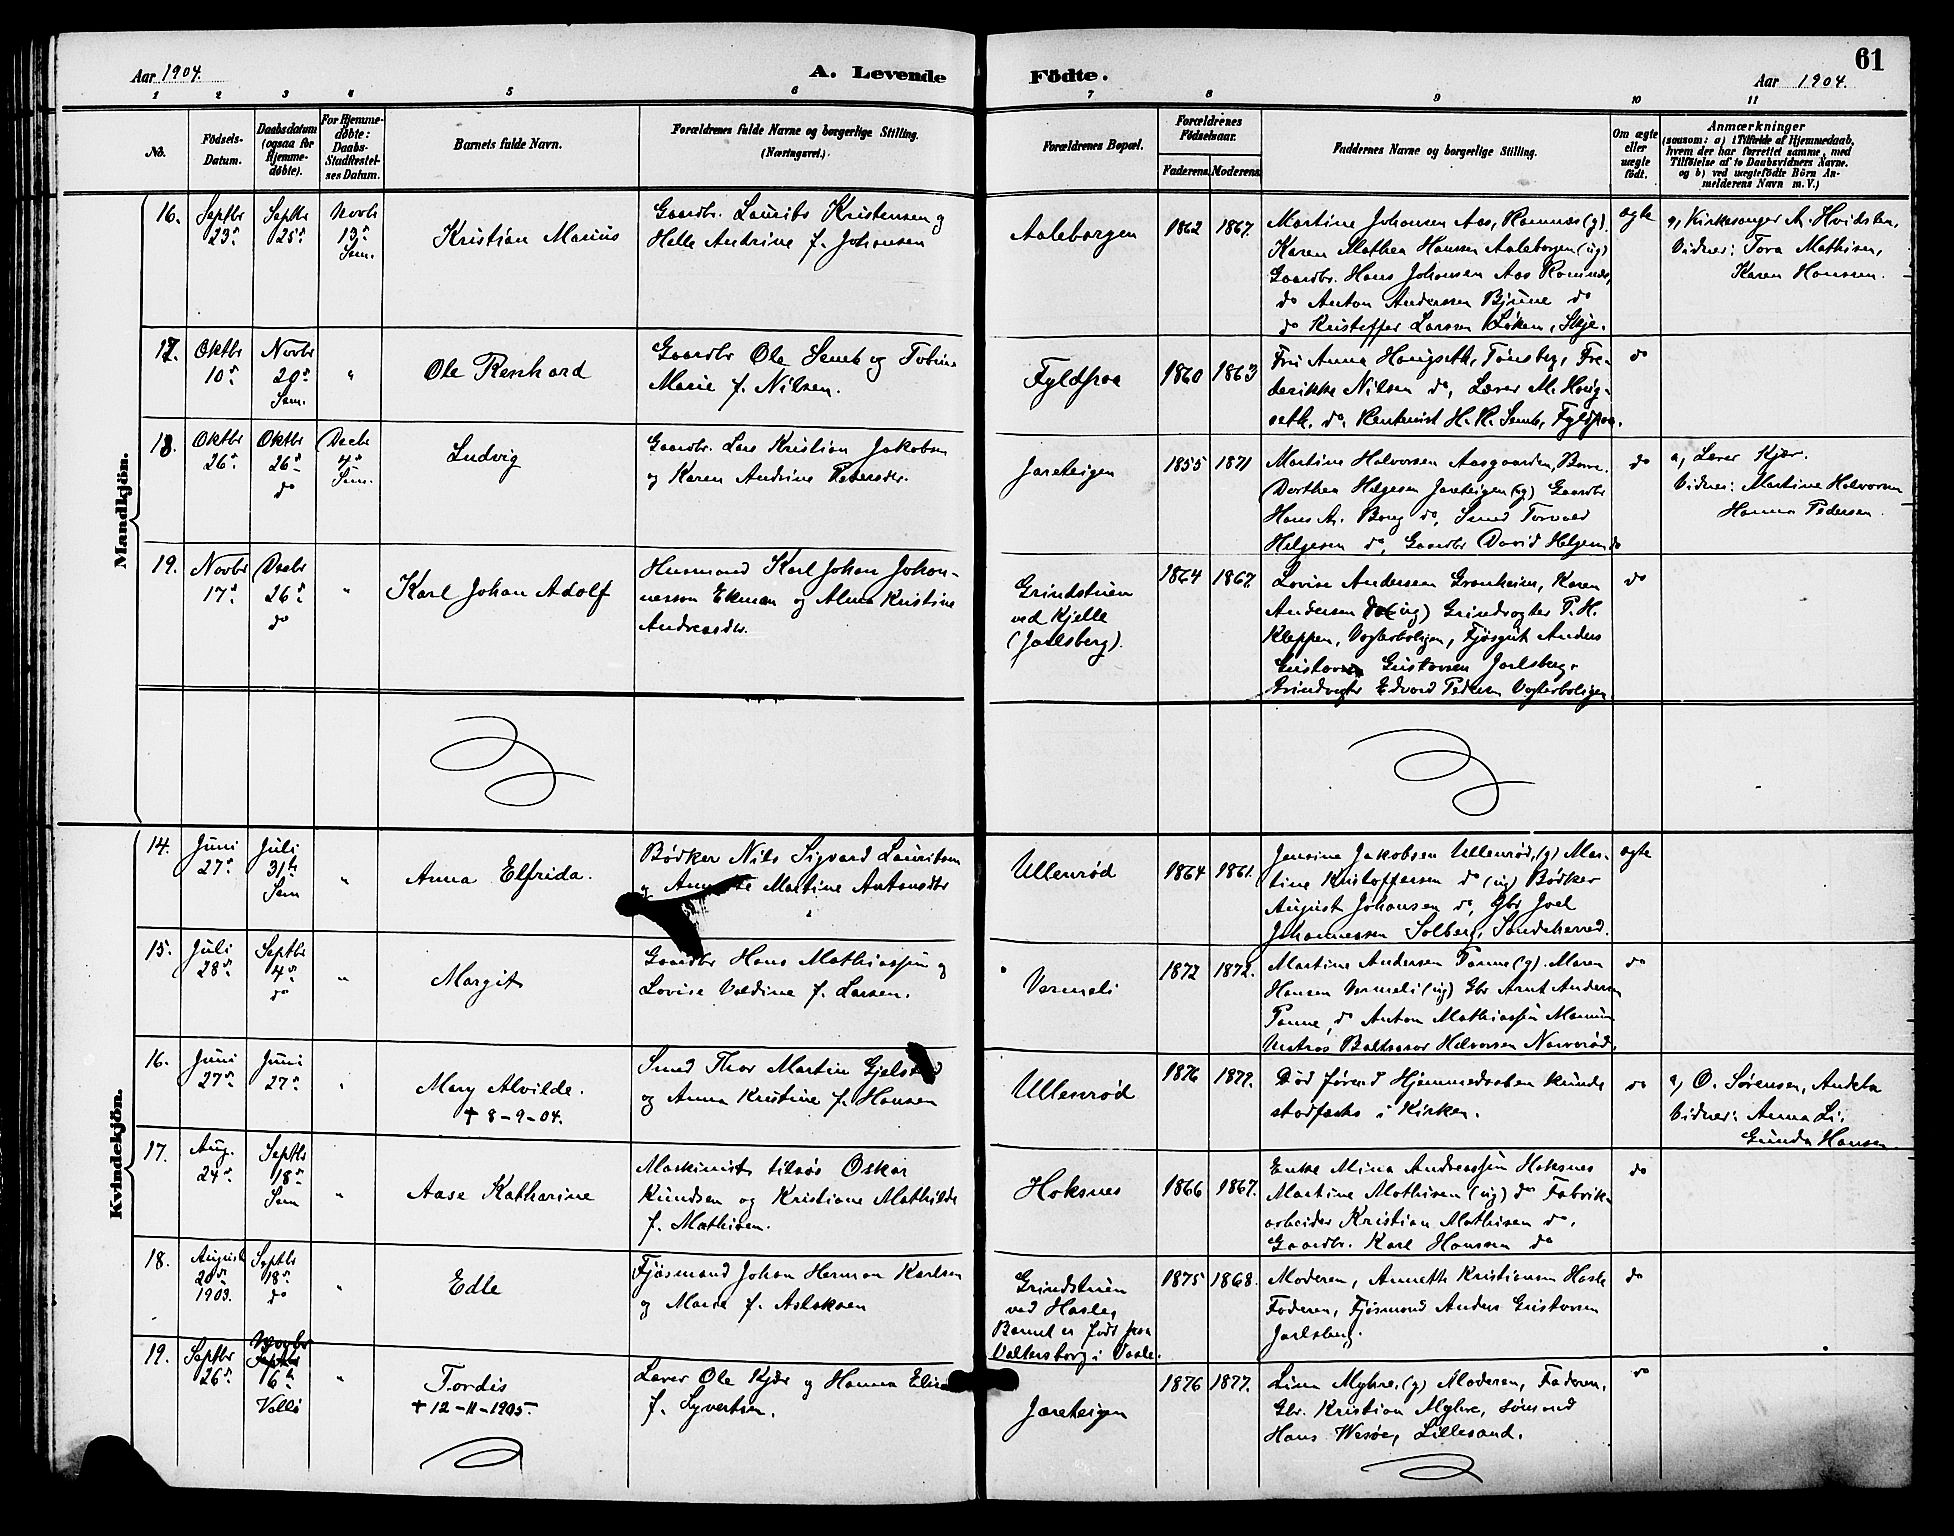 61
Aar 1904.
A. Levende
Födte.
Aar 1904.
1 2 3 4 5 6 7 8 9 10 11
No.
Födsels-
Datum.
Daabsdatum
(ogsaa for
Hjemme-
døbte).
For Hjemme-
døbte:
Daabs-
Stadfæstel-
ses Datum.
Barnets fulde Navn.
Forældrenes fulde Navne og borgerlige Stilling.
(Næringsvei.)
Forældrenes Bopæl.
Forældrenes
Födselsaar.
Faderens. Moderens.
Faddernes Navne og borgerlige Stilling.
Om ægte
eller
uægte
født.
Anmærkninger
(saasom: a) i Tilfælde af Hjemmedaab,
hvem der har forrettet samme, med
Tilføielse af to Daabsvidners Navne.
og b) ved uægtefødte Börn An-
melderens Navn m. V.)
Mandkjön.
16.
Septbr
23d
Septbr
25d
Novbr
13d
Sem.
Kristian Marius
Gaardbr. Laurits Kristensen og
Helle Andrine f. Johansen
Aaleborgen
1862
1867.
Martine Johansen Aas, Ramnes (g).
Karen Mathea Hansen Aaleborgen (ug)
Gaardbr. Hans Johansen Aas Ramnes,
do Anton Andersen Bjune do
do Kristoffer Larsen Løken, Skje.
ægte
a, Kirkesanger A. Hvidsten,
Vidner: Tora Mathisen,
Karen Hanssen.
17.
Oktbr
10d
Novbr
20d
Sem.
"
Ole Renhard
Gaardbr Ole Semb og Tobine
Marie f. Nilsen.
Fyldpaa
1860
1863
Fru Anna Haugseth, Tønsberg, Fre-
derikke Nilsen do, Lærer M. Haug-
seth. do. Rentenist H. R. Semb, Fyldpaa.
do
18.
Oktbr
26d
Oktbr
26d
do
Decbr
4d
Sem.
Ludvig
Gaardbr. Lars Kristian Jakobsen
og Karen Andrine Petersdtr.
Jareteigen
1855
1871
Martine Halvorsen Aasgaarden, Borre.
Dorthea Helgesen Jareteigen (ug) Gaardbr
Hans A. Borg do, Smed Torvald
Helgesen do, Gaardbr David Helgesen do
do
a, Lærer Kjær.
Vidner: Martine Halvorsen
Hanna Pedersen.
19.
Novbr
17d
Decbr
26d
do
"
Karl Johan Adolf
Husmand Karl Johan Johan-
nesson Ekman og Alma Kristine
Andreasdtr.
Grindstuen
ved Kjelle
(Jarlsberg).
1864
1867.
Lovise Andersen Granheien, Karen
Andersen do (ug) Grindvogter P. H.
Kleppen, Vogterboligen, Fjøsgut Anders
Gustavsen Jarlsberg.
Grindvogter Edvard Pedersen Vogterboligen
do
Kvindekjön.
14.
Juni
27d
Juli
31te
Sem
"
Anna Elfrida.
Bødker Nils Sigvard Lauritsen
og Martine Antonsdtr
Ullenrød
1864
1861.
Jensine Jakobsen Ullenrød, (g) Mar-
tine Kristoffersen do (ug) Bødker
August Johansen do, Gbr Joel
Johannessen Solberg, Sandeherred.
ægte
15.
Juli
28d
Septbr
4d
do
"
Margit
Gaardbr Hans Mathiassen og
Lovise Valdine f. Larsen.
Vermeli
1872
1872.
Martine Andersen Tanum (g). Maren
Hansen Vermeli (ug) Gbr Arnt Andersen
Tanum, do Anton Mathiassen
Baltsasar Halvorsen Narverød.
do
16.
Juni
27d
Juni
27d
"
Mary Alvilde.
+ 8-9-04.
Smed Thor Martin Gjelstad
og Anna Kristine f. Hansen
Ullenrød
1876
1877.
Død førend Hjemmedaaben kunde
stadfæstes i Kirken.
do
a, O. Sørensen, Andebu
Vidner: Anna Li,
Gunda Hansen
17.
Aug.
24d
Septbr
18d
Sem
"
Aase Katharine
Maskinist tilsøs Oskar
Knudsen og Kristiane Mathilde
f. Mathisen.
Hoksnes
1866
1867.
Enke Mina Andreassen Hoksnes
Martine Mathisen (ug) do Fabrik-
arbeider Kristian Mathisen do,
Gaardbr. Karl Hanssen do
do
18.
August
20d
1903.
Septbr
18d
do
"
Edle
Fjøsmand Johan Herman Karlsen
og Marie f. Aslaksen
Grindstuen
ved Hasle,
Barnet er født paa
Valkersborg i Vaale.
1875
1868.
Moderen, Annette Kristiansen Hasle
Faderen, Fjøsmand Anders Gustavsen
Jarlsberg.
do
19.
Septbr
26d
Novbr
Septbr
6te
Vallø
"
Tordis
+ 12-11-1905.
Lærer Ole Kjær og Hanna
f. Syvertsen.
Jareteigen
1876
1877.
Lina Myhre, (g) Moderen, Faderen,
Gbr. Kristian Myhre, Sømand
Hans Wesøe, Lillesand.
do